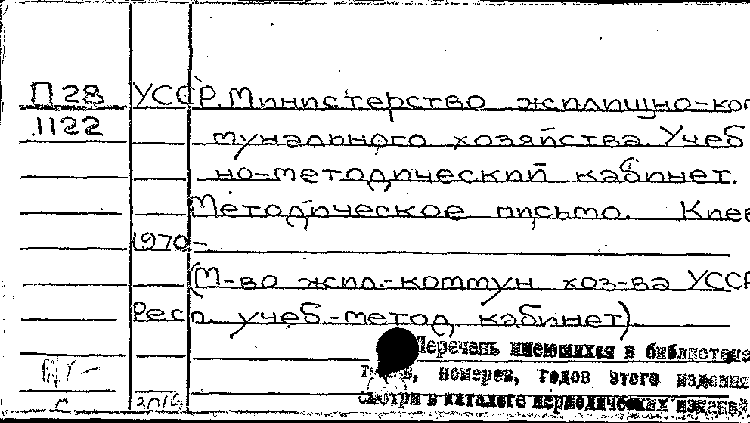 П28 УССР. Министерство жилищно-ком
1122 мунального хозяйства. Учеб
но-методический кабинет.
Методическое письмо. Киев
1970-
(М-во жил.-коммун хоз-ва УССР
Респ. учеб.-метод кабинет).
Перечень имеющихся в библиотеке
номеров, годов этого издания
смотри в каталоге периодических изданий